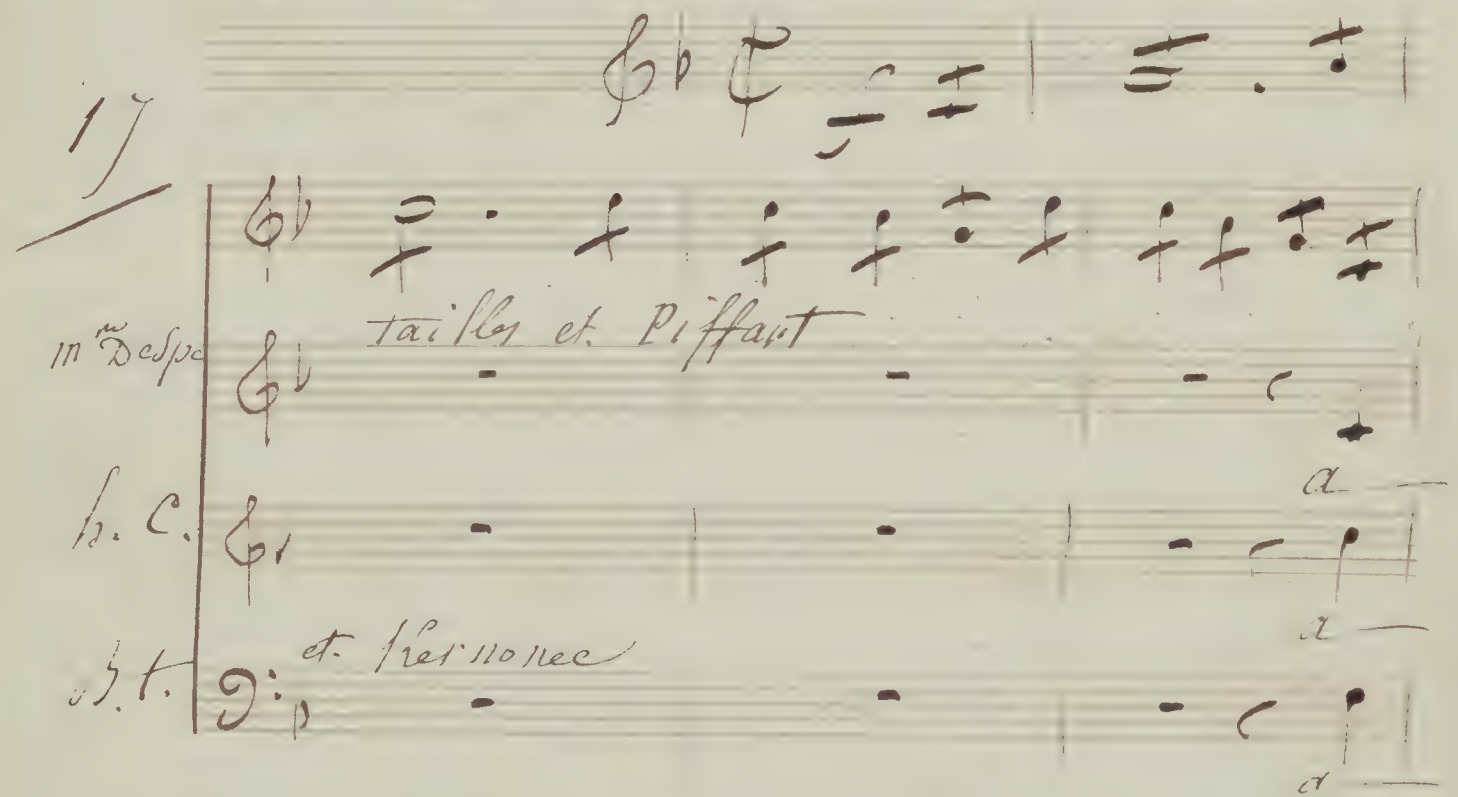 17
Tailles et Piffart
mm Despe
a —
h. C.
a —
et Kernonec
b. t.
a —